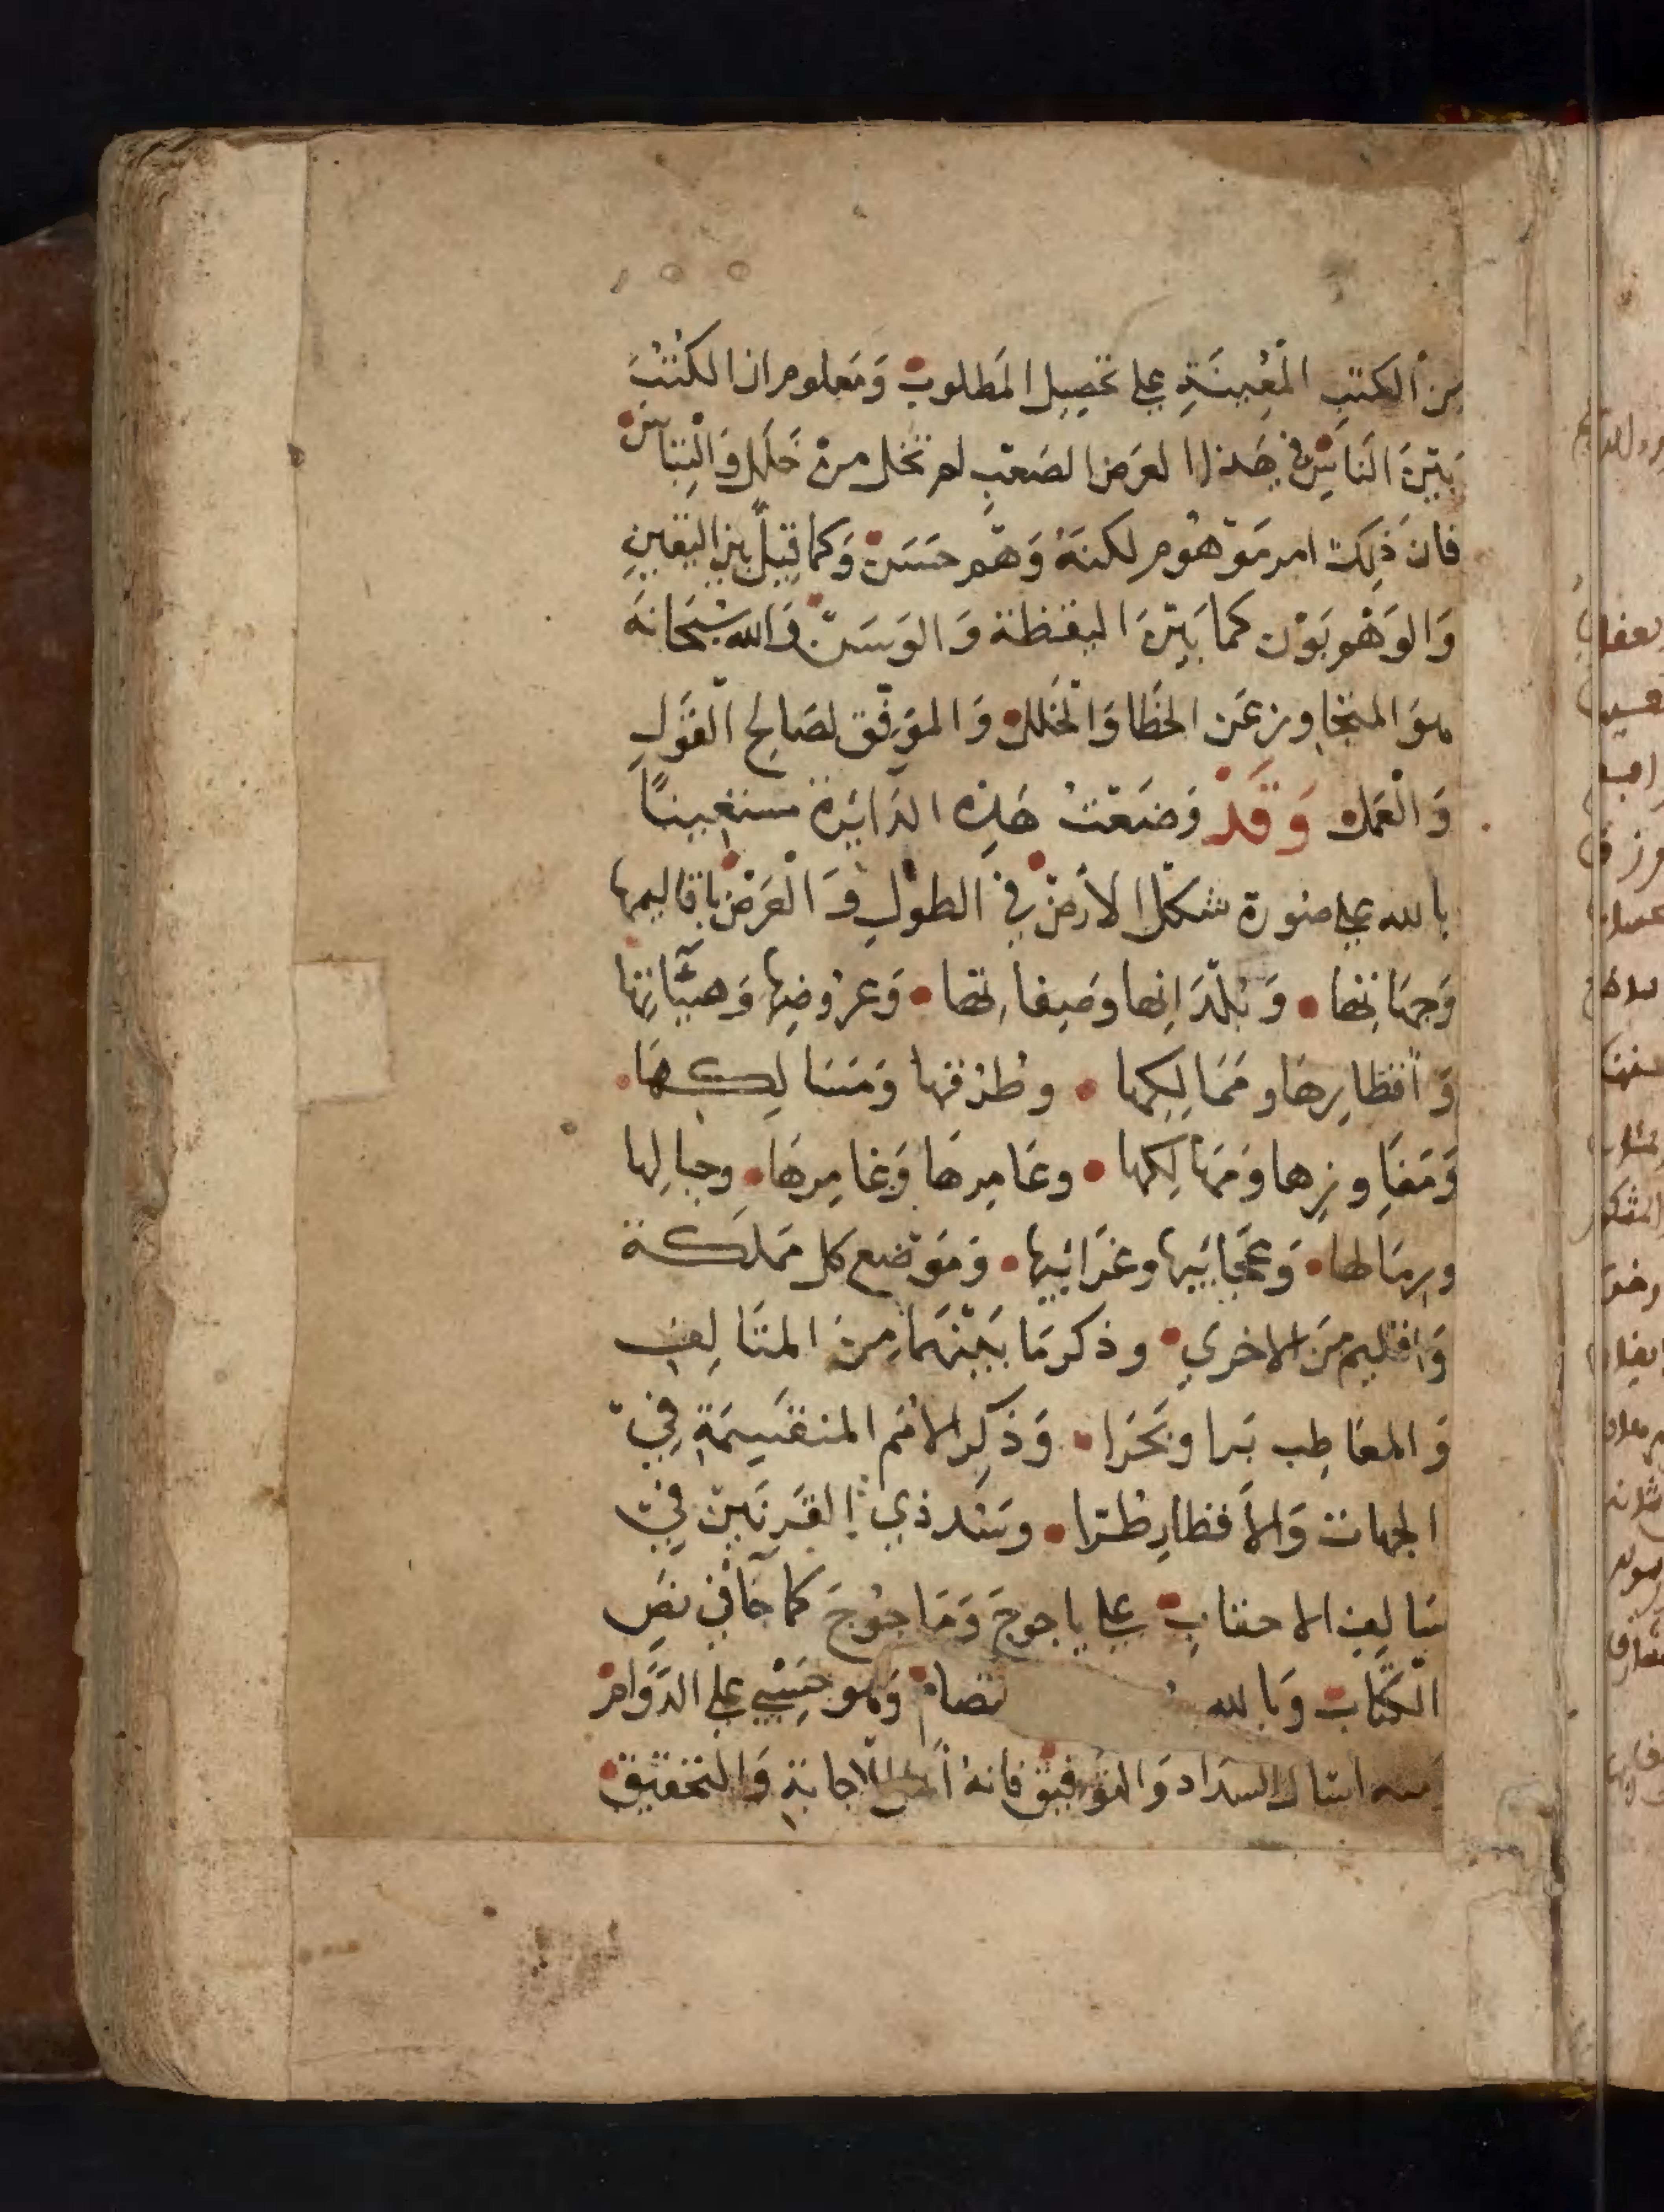 من الكتب المُعِينَةِ على تحصيل المَطلوب وَمَعلوم ان الكُتُبَ
بَيْنَ النَاسِ في هَذا الغرض الصَعب لم تخل من خَلَل وَالْتِبَاسْ
فانَ ذَلِكَ امر مَوْهوُم لكنهُ وَهْم حَسَن وَكما قيلَ بين اليَقينِ
وَالوَهْم بَوْن كما بَيْنَ اليقظة وَالوَسَنْ وَالله سُبْحَانَه
هوَ المتجاوز عَن الخَطا وَالخَلل وَالموَفّق لصَالح القَولِ
وَالعَمل وَقَدْ وَضَعْتُ هَذِه الدَايَرة مستعِينًا
بالله على صُورة شكل الأرض في الطول وَالعَرْض باقاليمها
وَجهَاتها وَبُلْدَانِها وصَفِاتها وَعرُوضِها وَهيئآتها
وَأقطارِهَا ومَمَالِكها وطرُقها وَمَسَالِكهَا
وَمَفَاوِزِها وَمَهَالِكها وعَامِرهَا وَغامِرهَا وجبالِها
ورِمَالها وَعَجَايَبها وغَرَايَبها وَمَوضع كل مَملَكة
وَاقليم مِنَ الاخرى وذكر مَا بَيْنَهمَا مِنَ المتَالِفِ
وَالمعَاطِب بَرا وبَحَرا وَذكِر الامَم المنقسِمَةِ في
الجهات وَالأقطارِ طُرّا وسَد ذي القَرنَين في
سَالِفِ الاحقابِ على ياجوجَ وَمَاجوُجَ كما جآ في نصِ
الكتَاب وَبالله وَهو حَسْبي على الدَوَامْ
اسال السدَاد وَالتوفيق فانهُ أهل الاجابةِ وَالتحقيق